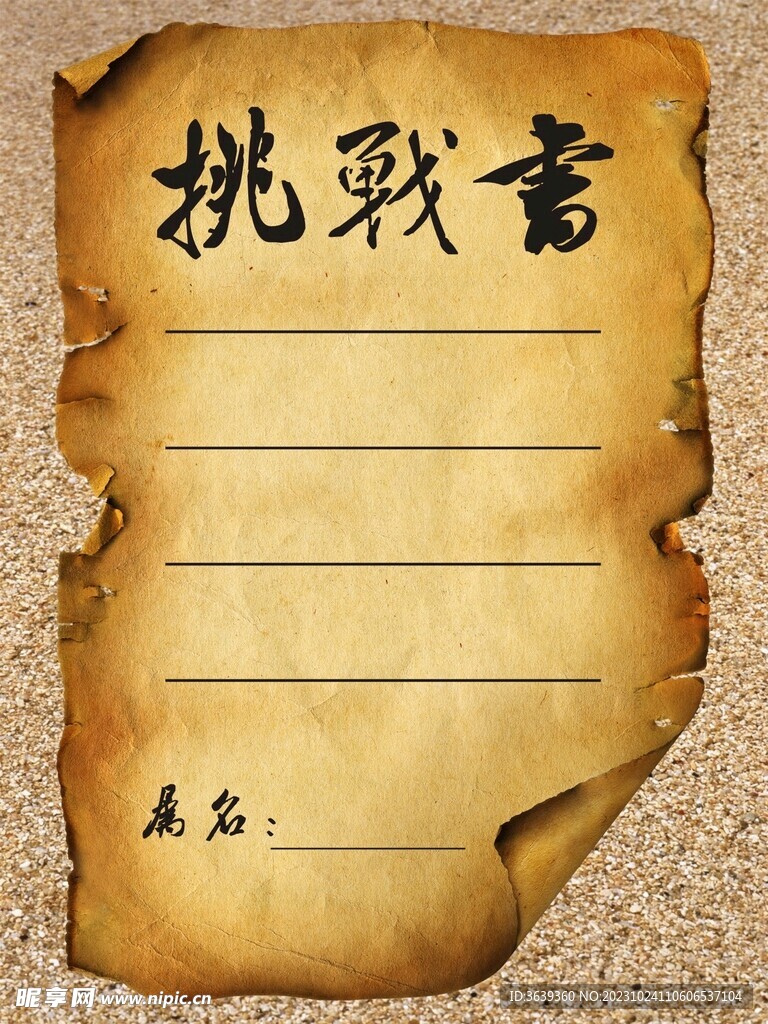 挑戰書
属名：
昵享网 www.nipic.cn
ID:3639360 NO:20231024110606537104